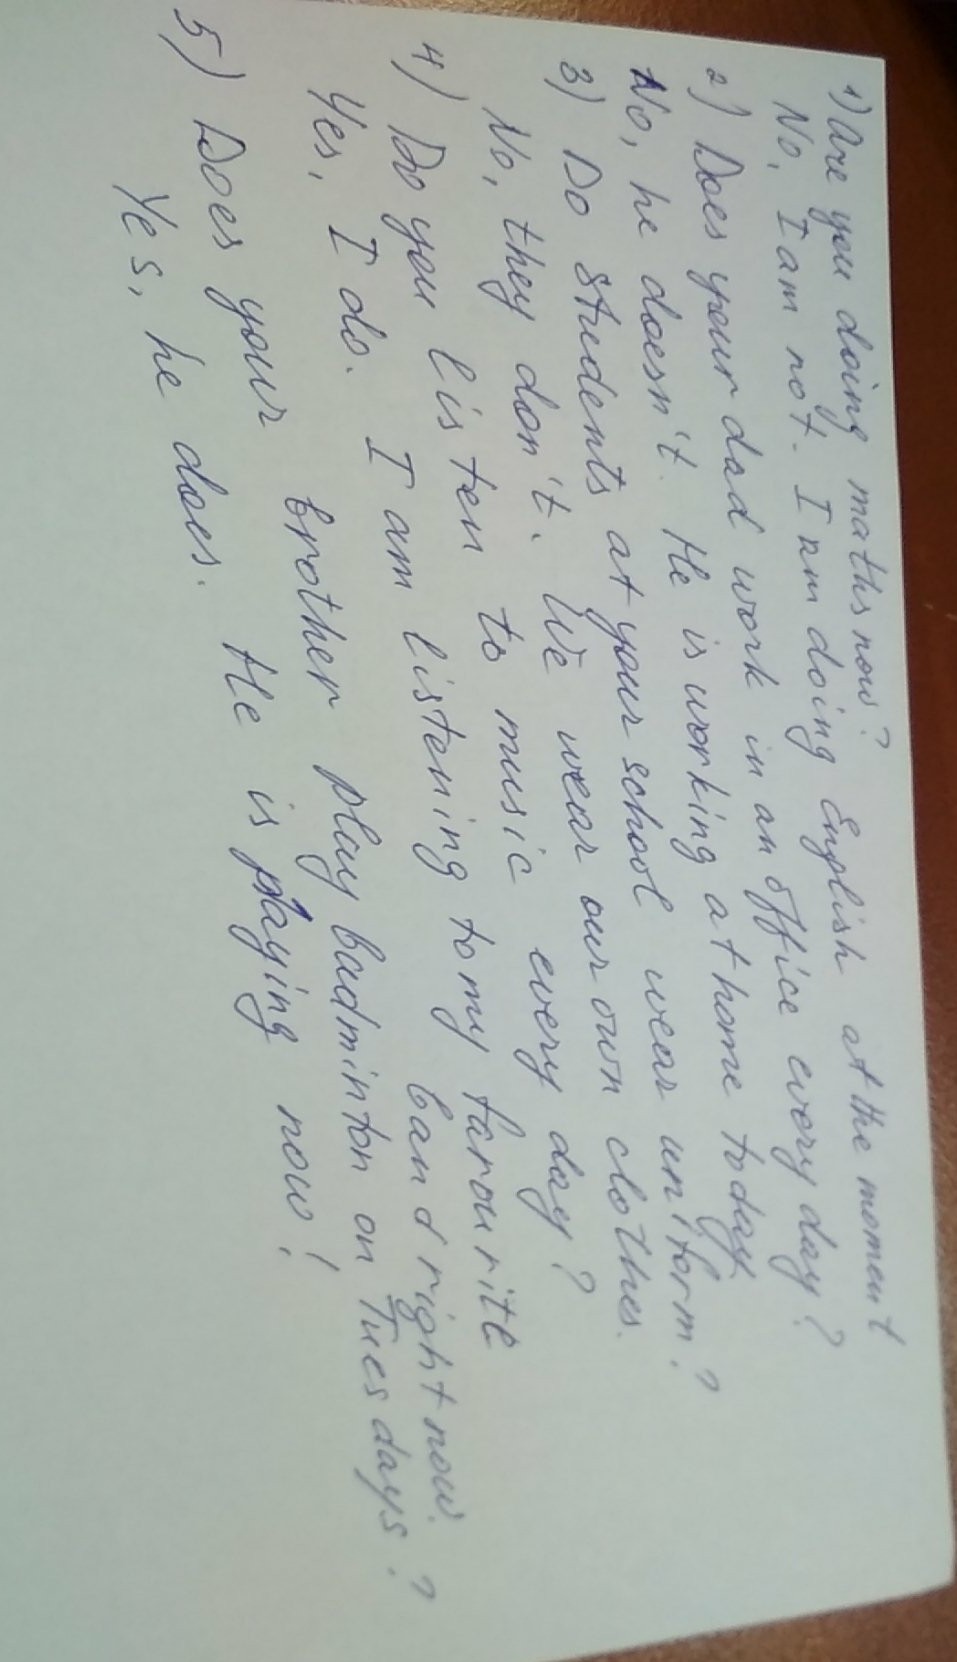 1) Are you doing maths now?
No, I am not. I am doing English at the moment
2) Does your dad work in an office every day?
No, he doesn't. He is working at home today
3) Do students at your school wear uniform?
No, they don't. We wear our own clothes.
4) Do you listen to music every day?
Yes, I do. I am listening to my favourite
band right now.
5) Does your brother play badminton on Tuesdays?
Yes, he does. He is playing now!